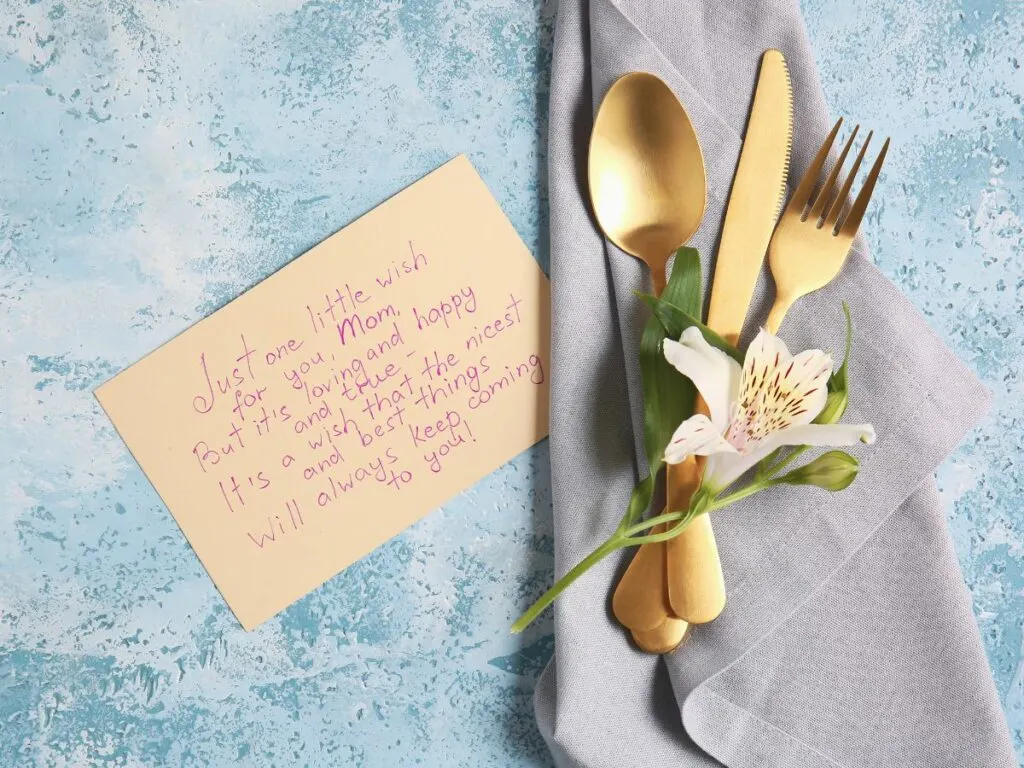 Just one little wish
for you, Mom,
But it's loving and happy
and true -
It's a wish that the nicest
and best things
Will always keep coming
to you!